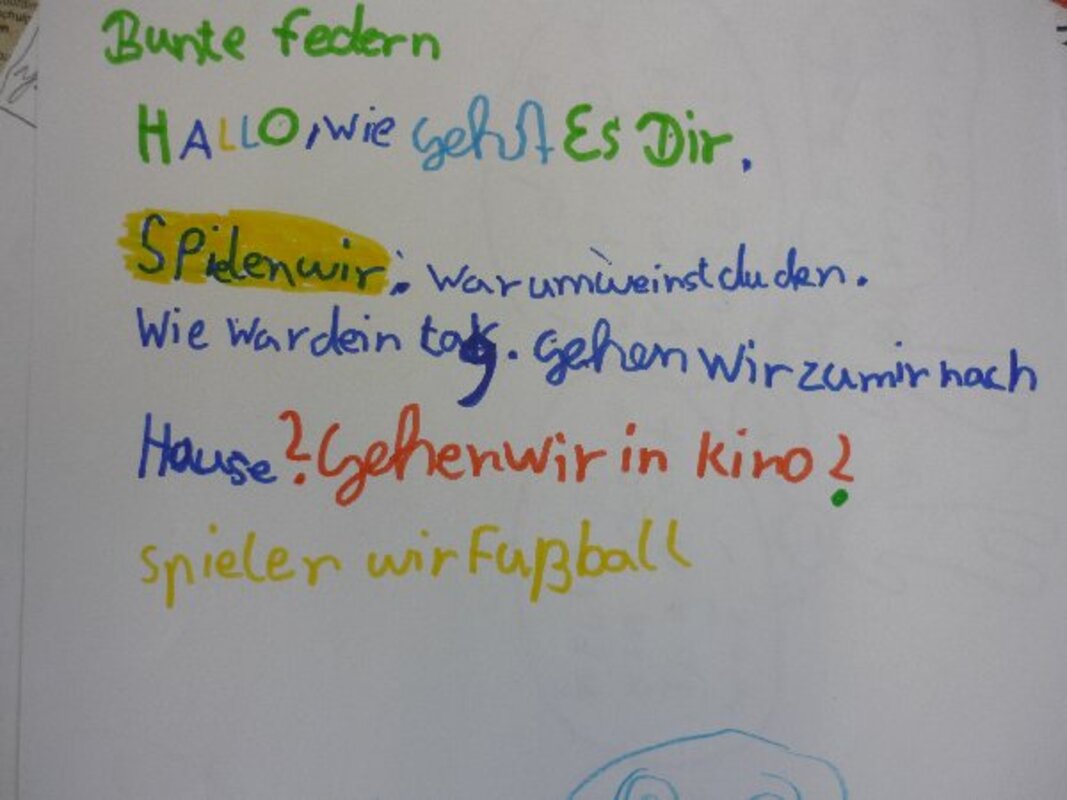 Bunte Federn
HALLO, wie gehst Es Dir.
Spielen wir. warum weinst du den.
Wie war dein tag. gehen wir zu mir nach
Hause? Gehen wir in kino?
spielen wir Fußball